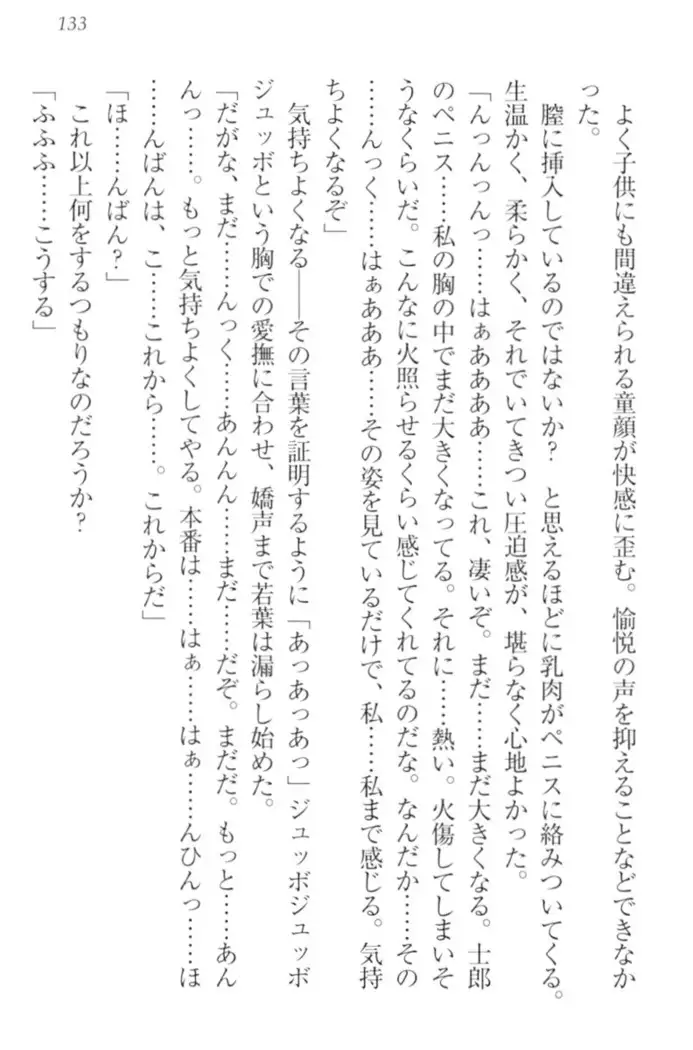 133
よく子供にも間違えられる童顔が快感に歪む。愉悦の声を抑えることなどできなか
った。
膣に挿入しているのではないか？　と思えるほどに乳肉がペニスに絡みついてくる。
生温かく、柔らかく、それでいてきつい圧迫感が、堪らなく心地よかった。
「んっんっんっ……はぁああああ……これ、凄いぞ。まだ……まだ大きくなる。士郎
のペニス……私の胸の中でまだ大きくなってる。それに……熱い。火傷してしまいそ
うなくらいだ。こんなに火照らせるくらい感じてくれてるのだな。なんだか……その
……んっく……はぁあああ……その姿を見ているだけで、私……私まで感じる。気持
ちよくなるぞ」
気持ちよくなる――その言葉を証明するように「あっあっあっ」ジュッボジュッボ
ジュッボという胸での愛撫に合わせ、嬌声まで若葉は漏らし始めた。
「だがな、まだ……んっく……あんんん……まだ……だぞ。まだだ。もっと……あん
んっ……。もっと気持ちよくしてやる。本番は……はぁ……はぁ……んひんっ……ほ
……んばんは、こ……これから……。これからだ」
「ほ……んばん？」
これ以上何をするつもりなのだろうか？
「ふふふ……こうする」